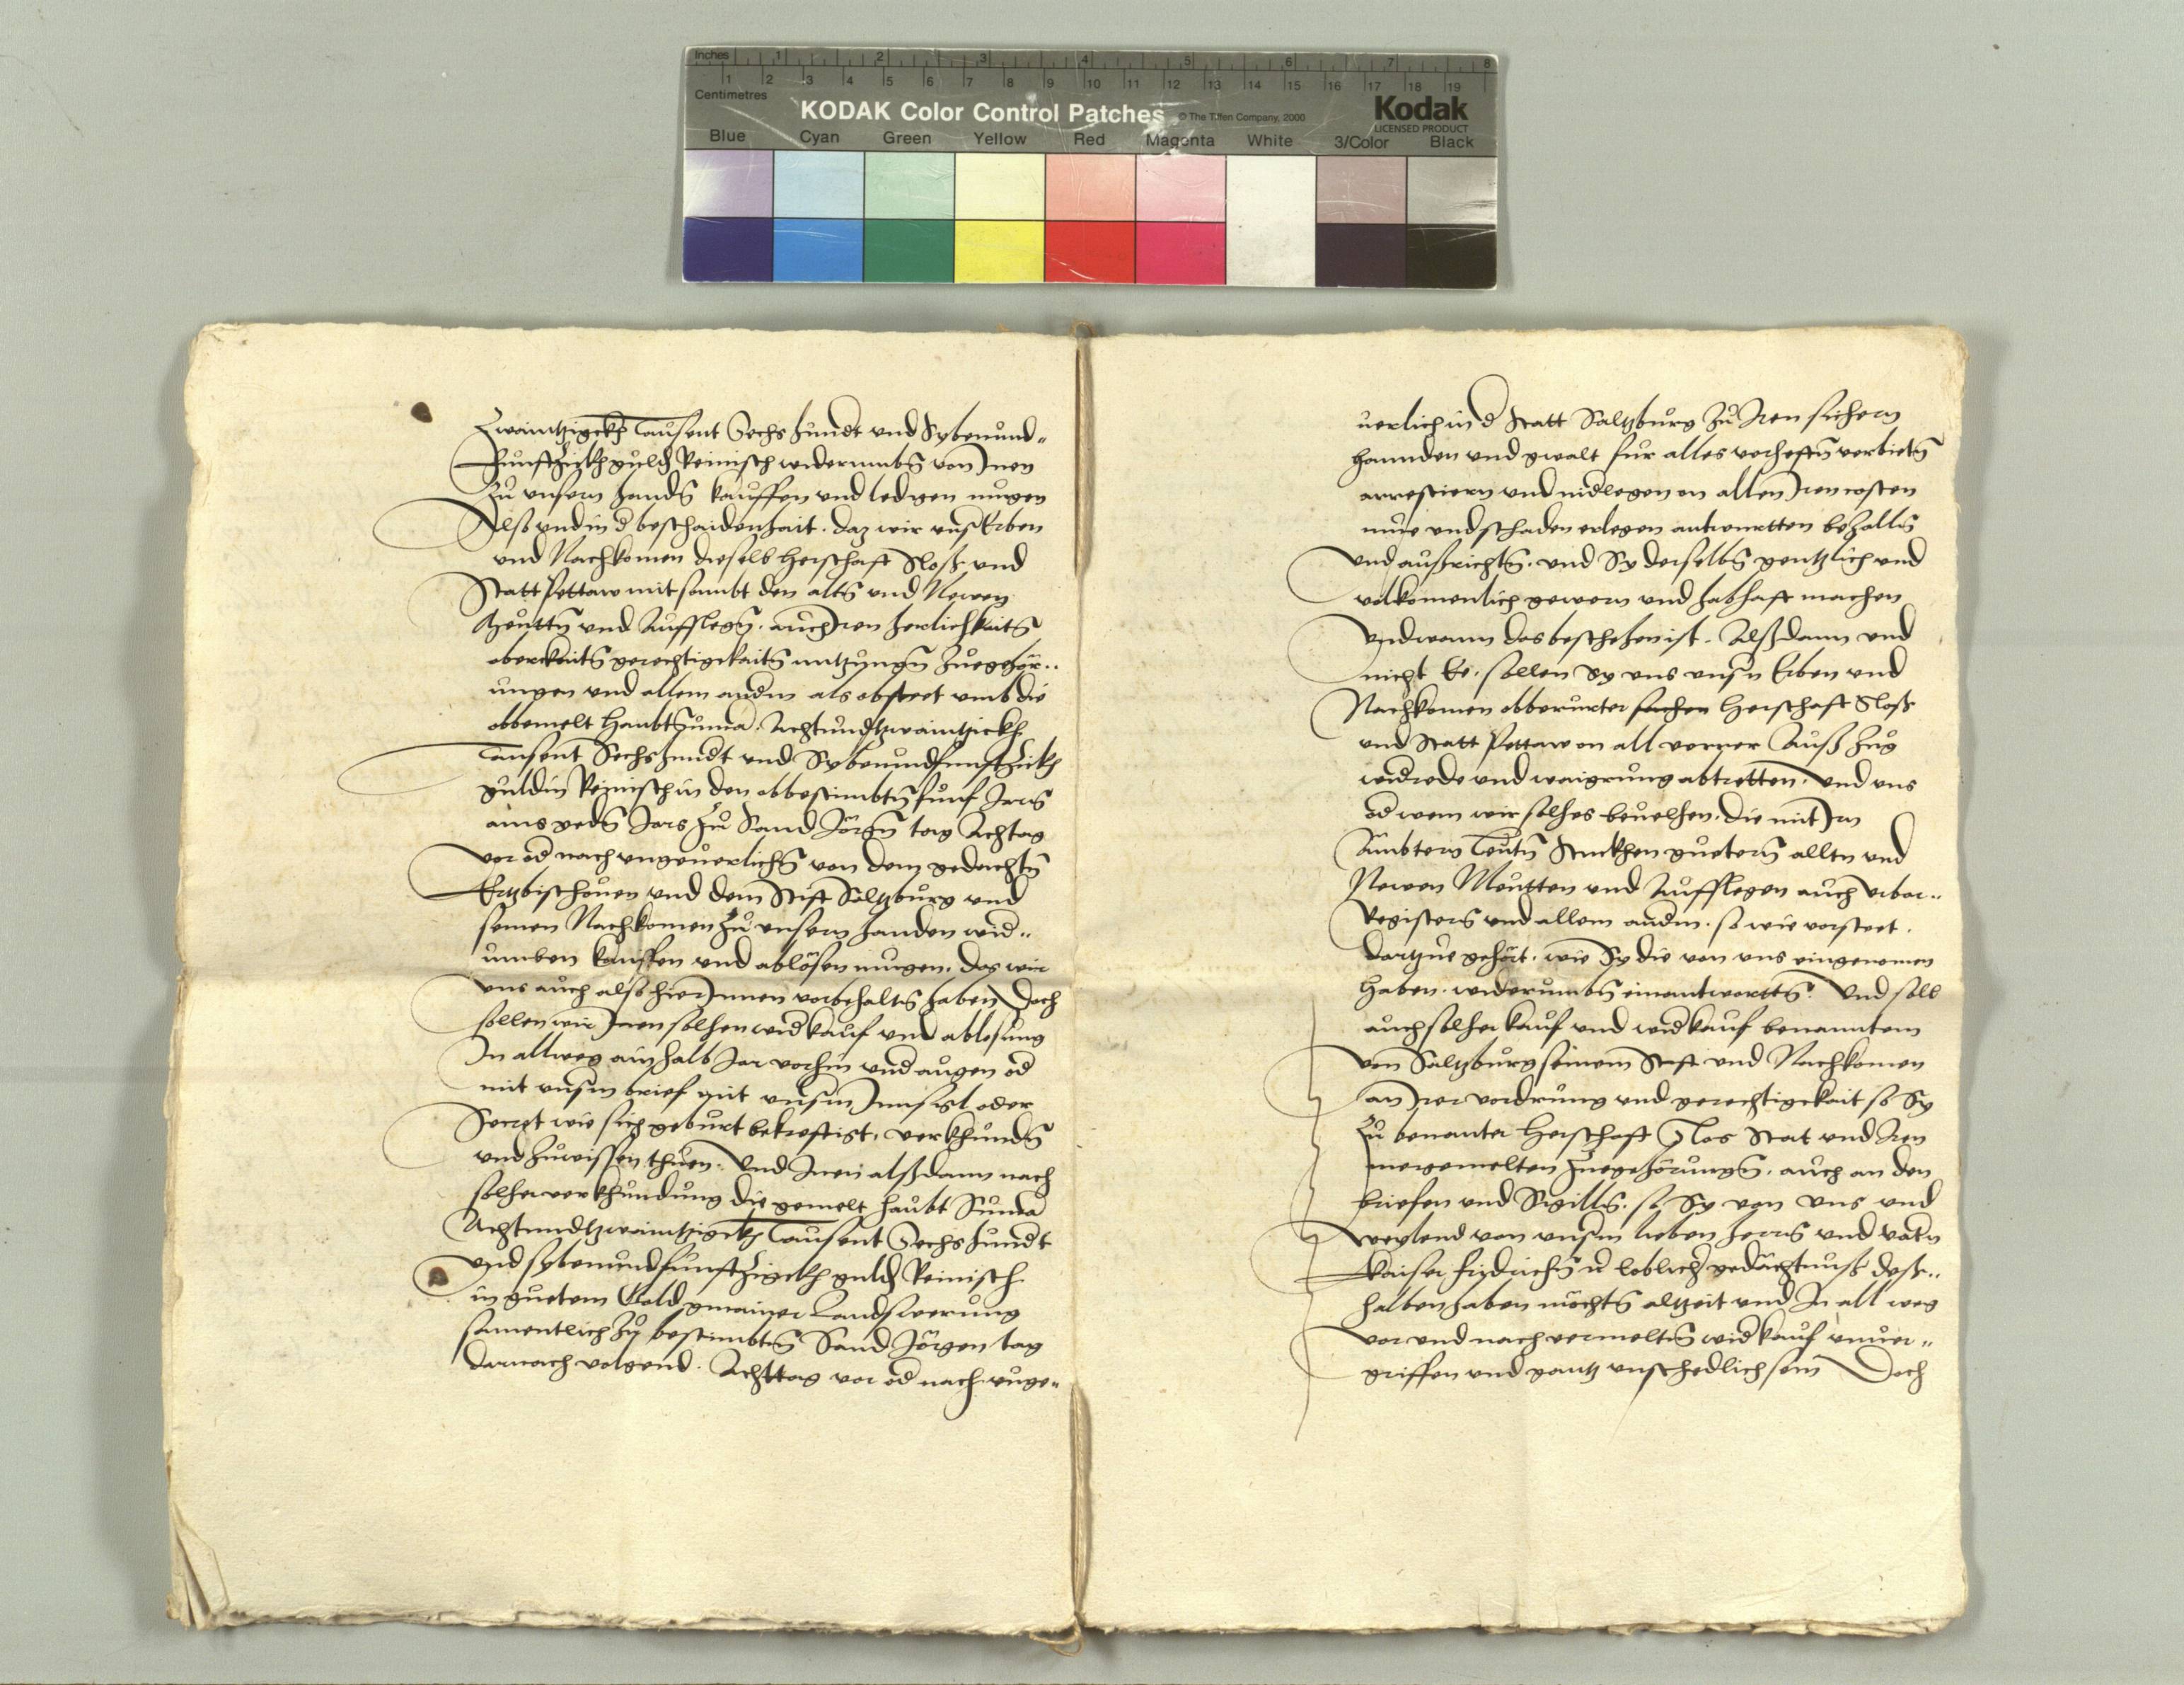 Inches 1 2 3 4 5 6 7 8
1 2 3 4 5 6 7 8 9 10 11 12 13 14 15 16 17 18 19
Centimetres
KODAK Color Control Patches © The Tiffen Company, 2000 Kodak
LICENSED PRODUCT
Blue Cyan Green Yellow Red Magenta White 3/Color Black
Zwaintzigckh Tausent Sechs hundt und Sybenund„
Funftzickh guld Reinisch widerumbn von Inen
Zu unsern handn kauffen und ledigen mugen
Also und in d beschaidenhait. daz wir uns Erben
und Nachkomen dieselb Herschaft Slosz und
Statt Pettaw mit sambt den altn und Newen
Meuttn und Aufflegn. auch Iren herlichkaitn
oberkaitn gerechtigckaitn nutzungn Zuegehör..
ungen und allem andrn als obsteet umb die
obbemelt Haubtsuma. Achtundtzwaintzickh
Tausent Sechshundt und Sybenundfunftzickh
guldin Reinisch in den obbestimbtn funf Jarn
ains yedn Jars Zu Sand Jörgn tag Achtag
vor od nach ungeverlichn von dem gedachtn
Ertzbischouen und dem Stift Saltzburg und
seinen Nachkomen Zu unsern handen wid„
umben kauffen und ablösen mugen. das wir
uns auch also hier Innen vorbehaltn haben Doch
sollen wir Inen solhen widkauf und ablosung
In allweg ain halb Jar vorhin und augen od
mit unserm brief mit unserm Innsigl oder
Secret wie sich geburt bekreftigt. verkhundn
und Zuwissen thuen. Und Inen alszdann nach
solher verkhundung die gemelt haubt Suma
Achtundtzwaintzigckh Tausent Sechs hundt
und sybenundfunftzigckh guld Reinisch
in guetem Gold gmainer Landswerung
samentlich Zu bestimbtn Sand Jörgen tag
darnach volgend. Achttag vor od nach unge„
uerlich in d Statt Saltzburg Zu Iren sichern
hannden und gwalt fur alles verheftn verbietn
arrestiern und nidlegen on allen Iren costen
mue und schaden erlegen antwurtten betzalln
und auszrichtn. und Sy derselbn gentzlich und
volkomenlich gewern und habhaft machen
Und wann das beschehen ist. Alszdann und
nicht Ee. sollen Sy uns unsn Erben und
Nachkomen obberurter sachen Herschaft Slosz
und Statt Pettaw on all verrer Ausz Zug
widrede und waigrung abtretten. und uns
od wem wir solhes beuelhen. die mit Irn
Ambtern Leutn Stuckhen guetern alltn und
Newen Meutten und Aufflegen auch Urbar„
Registern und allem andrn. so wie vorsteet.
dartzue gehört. wie Sy die von uns eingenomen
haben. widerumbn einantwurttn. Und soll
auch solher kauf und widkauf benanntem
von Saltzburg seinem Stift und Nachkomen
an Irer vordrung und gerechtigckait so Sy
Zu benanter Herschaft Slos Stat und Iren
mergemelten Zuegehörungn. auch an den
briefen und Sigilln. so Sy von uns und
weylend von unserm lieben herrn und vatrn
Kaiser fridrichn loblichr gedächtnusz desz„
halben haben möchtn altzeit und In all weg
vor und nach vermeltn widkauf unuer„
griffen und gantz unschedlich sein Doch